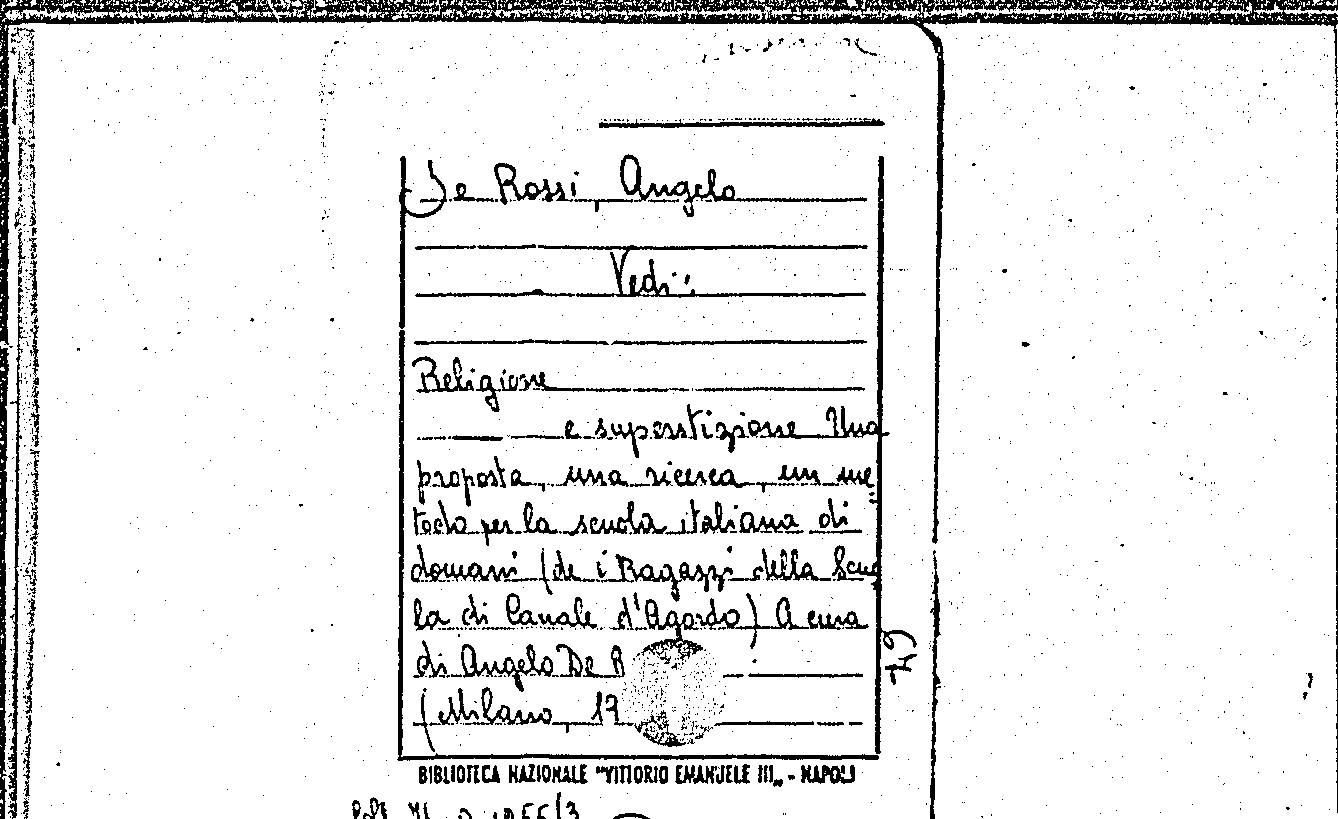 De Rossi, Angelo
Vedi:
Religione
e superstizione Una
proposta, una ricerca, un me=
todo per la scuola italiana di
domani (de i Ragazzi della Scuo
la di Canale d'Agordo) A cura
di Angelo De R
(Milano, 19
BIBLIOTECA NAZIONALE "VITTORIO EMANUELE III„ - NAPOLI